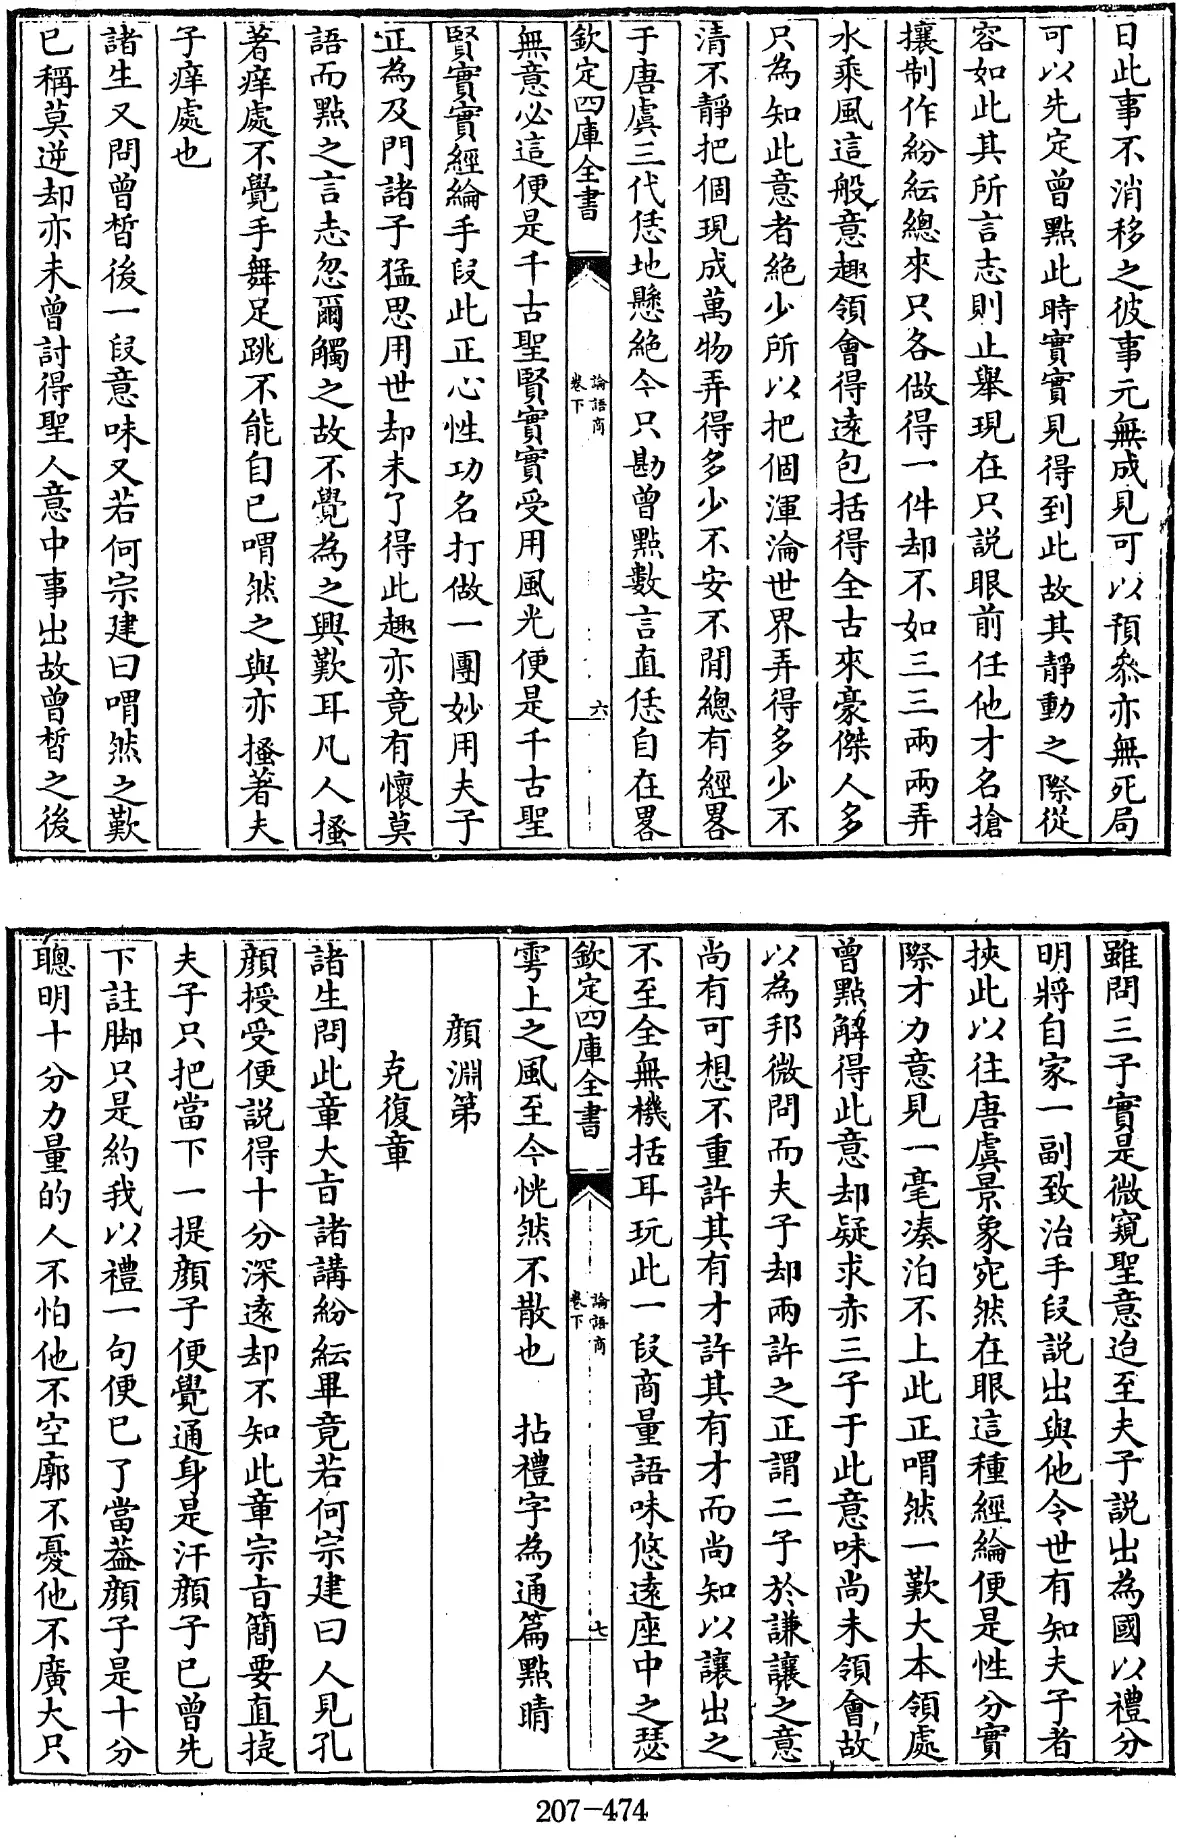 日此事不消移之彼事元無成見可以預叅亦無死局
可以先定曾點此時實實見得到此故其靜動之際從
容如此其所言志則止舉現在只説眼前任他才名搶
攘制作紛紜總來只各做得一件却不如三三兩兩弄
水乘風這般意趣領會得逺包括得全古來豪傑人多
只為知此意者絶少所以把個渾淪世界弄得多少不
清不靜把個現成萬物弄得多少不安不閒總有經畧
于唐虞三代恁地懸絶今只勘曾點數言直恁自在畧
欽定四庫全書
論語商
卷下
六
無意必這便是千古聖賢實實受用風光便是千古聖
賢實實經綸手段此正心性功名打做一團妙用夫子
正為及門諸子猛思用世却未了得此趣亦竟有懷莫
語而點之言志忽爾觸之故不覺為之興歎耳凡人搔
著癢處不覺手舞足跳不能自已喟然之與亦搔著夫
子癢處也
諸生又問曾晳後一段意味又若何宗建曰喟然之歎
已稱莫逆却亦未曾討得聖人意中事出故曾晳之後
雖問三子實是微窺聖意迨至夫子説出為國以禮分
明將自家一副致治手段説出與他令世有知夫子者
挾此以往唐虞景象宛然在眼這種經綸便是性分實
際才力意見一毫凑泊不上此正喟然一歎大本領處
曾點解得此意却疑求赤三子于此意味尚未領會故
以為邦微問而夫子却兩許之正謂二子於謙讓之意
尚有可想不重許其有才許其有才而尚知以讓出之
不至全無機括耳玩此一段商量語味悠遠座中之瑟
欽定四庫全書
論語商
卷下
七
雩上之風至今恍然不散也　拈禮字為通篇點晴
顔淵第
克復章
諸生問此章大㫖諸講紛紜畢竟若何宗建曰人見孔
顔授受便説得十分深逺却不知此章宗㫖簡要直捷
夫子只把當下一提顔子便覺通身是汗顔子已曾先
下註脚只是約我以禮一句便已了當葢顔子是十分
聰明十分力量的人不怕他不空廓不憂他不廣大只
207-474